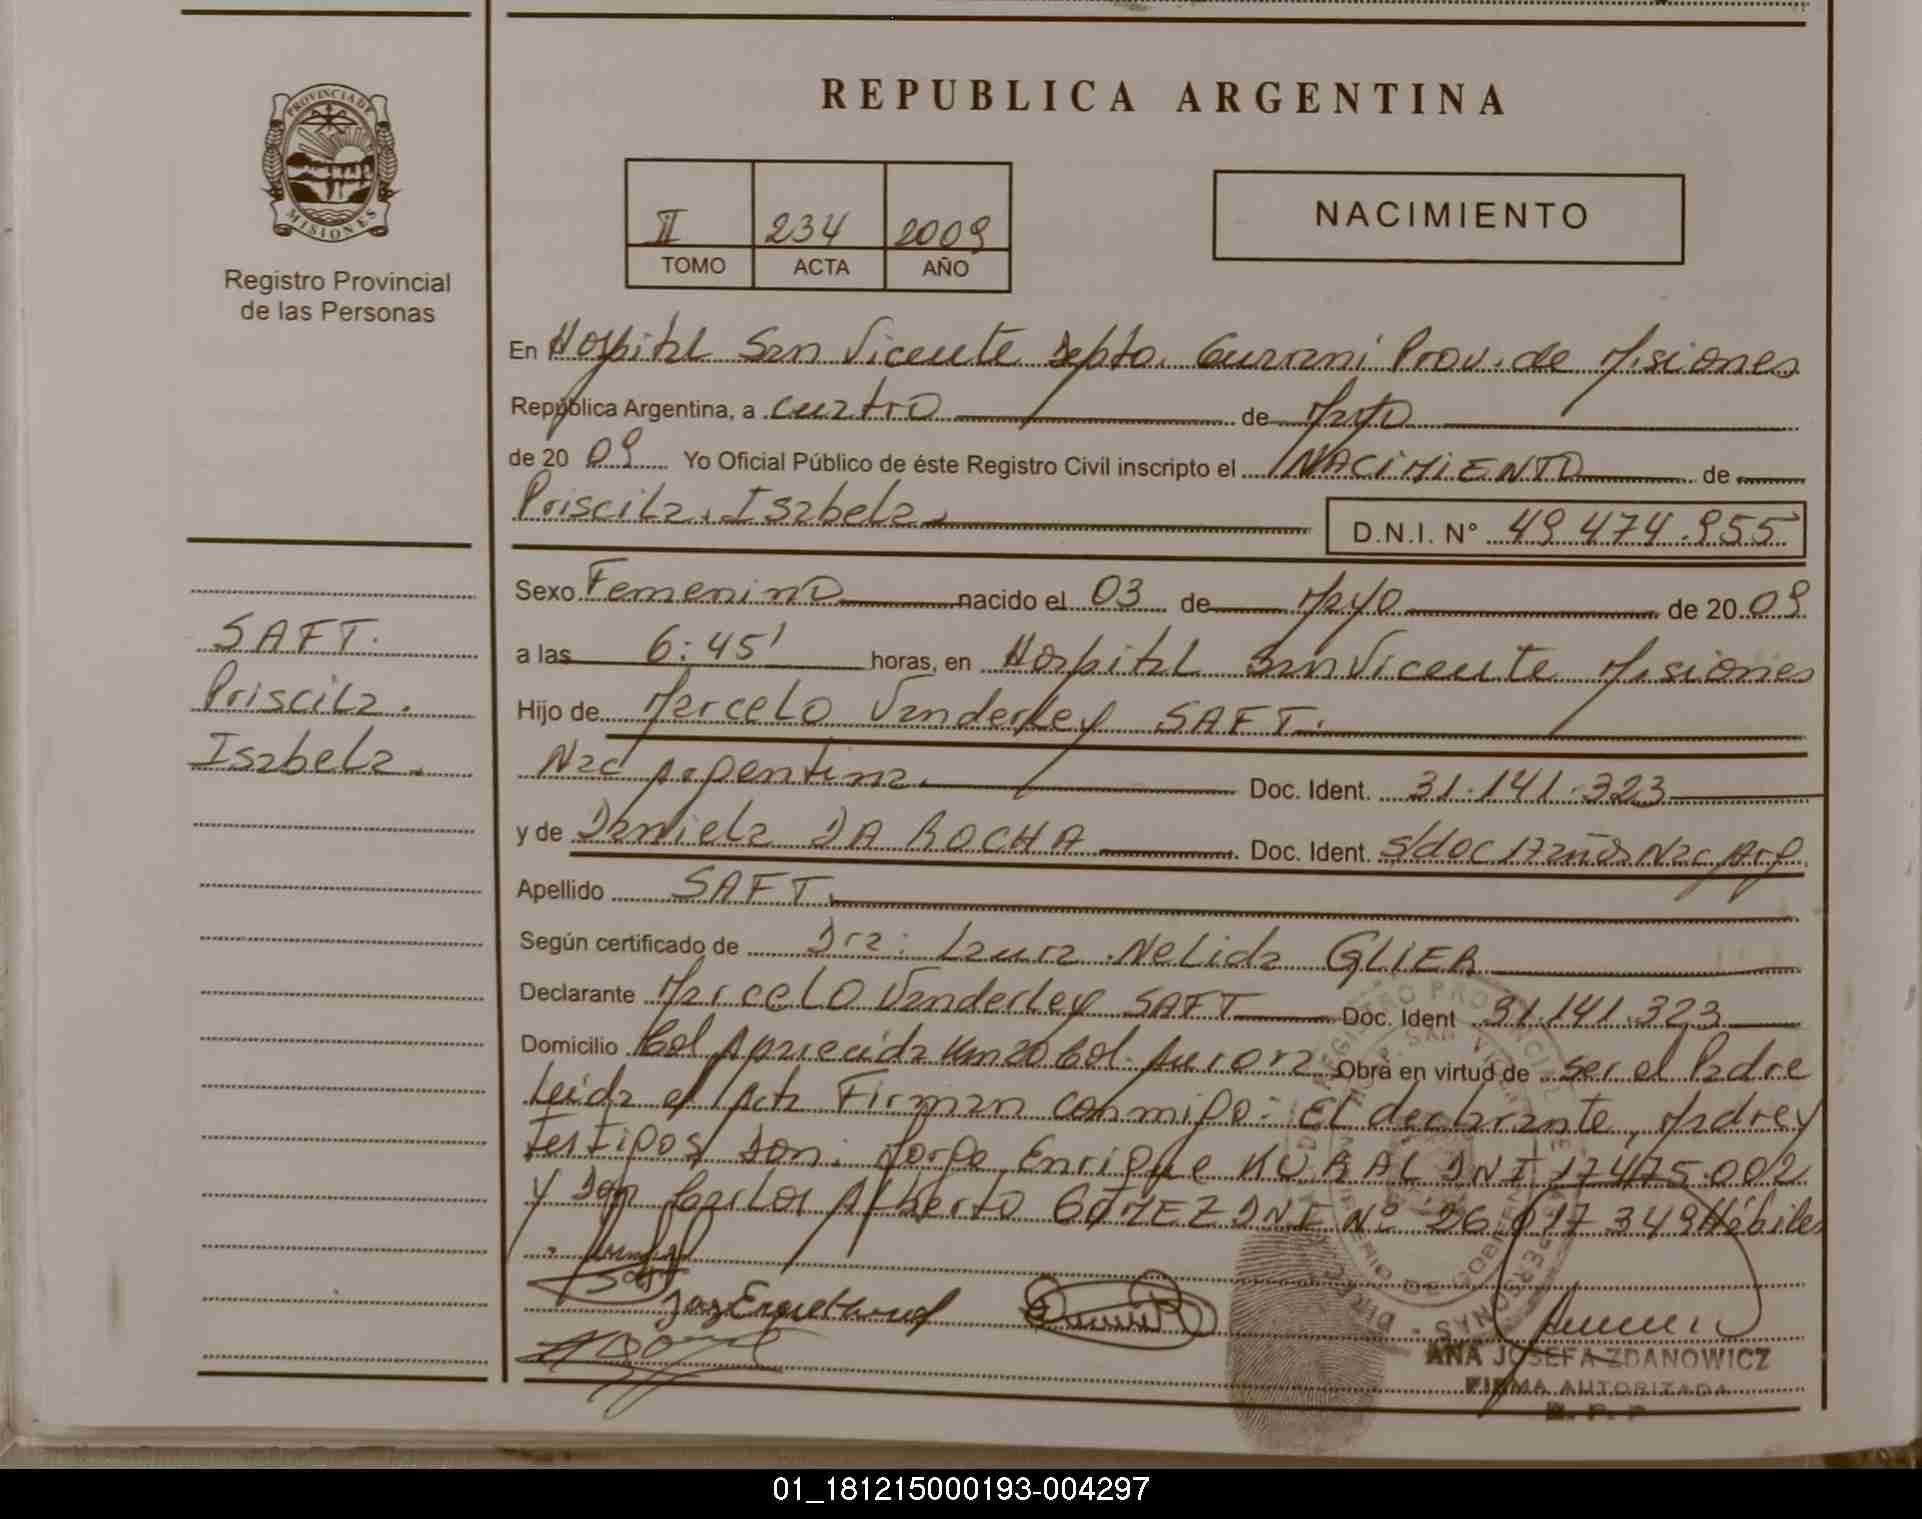 REPUBLICA ARGENTINA
PROVINCIA DE
MISIONES
Registro Provincial
de las Personas
II 234 2009
TOMO ACTA AÑO
NACIMIENTO
En Hospital San Vicente Depto. Guarani Prov. de Misiones
República Argentina, a cuatro de Mayo
de 20 09 Yo Oficial Público de éste Registro Civil inscripto el NACIMIENTO de
Priscila Isabela
D.N.I. N° 49 474.955
Sexo Femenino nacido el 03 de Mayo de 20 09
a las 6:45' horas, en Hospital San Vicente Misiones
Hijo de Marcelo Vanderley SAFT.
Nac Argentina Doc. Ident. 31.141.323
y de Daniela DA ROCHA Doc. Ident. s/doc 17 años Nac Arg.
Apellido SAFT
Según certificado de Dra: Laura Nelida GLIER
Declarante Marcelo Vanderley SAFT Doc. Ident 31.141.323
Domicilio Col Aparecida Km 20 Col. Aurora Obra en virtud de ser el Padre
Leida el Acta Firman conmigo: El declarante, Madre y
Testigos Don: Jorge Enrique KURAL DNI 17475.002
y Don Carlos Alberto GOMEZ DNI Nº 26.017 349 Hábiles
SAFT.
Priscila.
Isabela.
ANA JOSEFA ZDANOWICZ
FIRMA AUTORIZADA
R. P. P
01_181215000193-004297